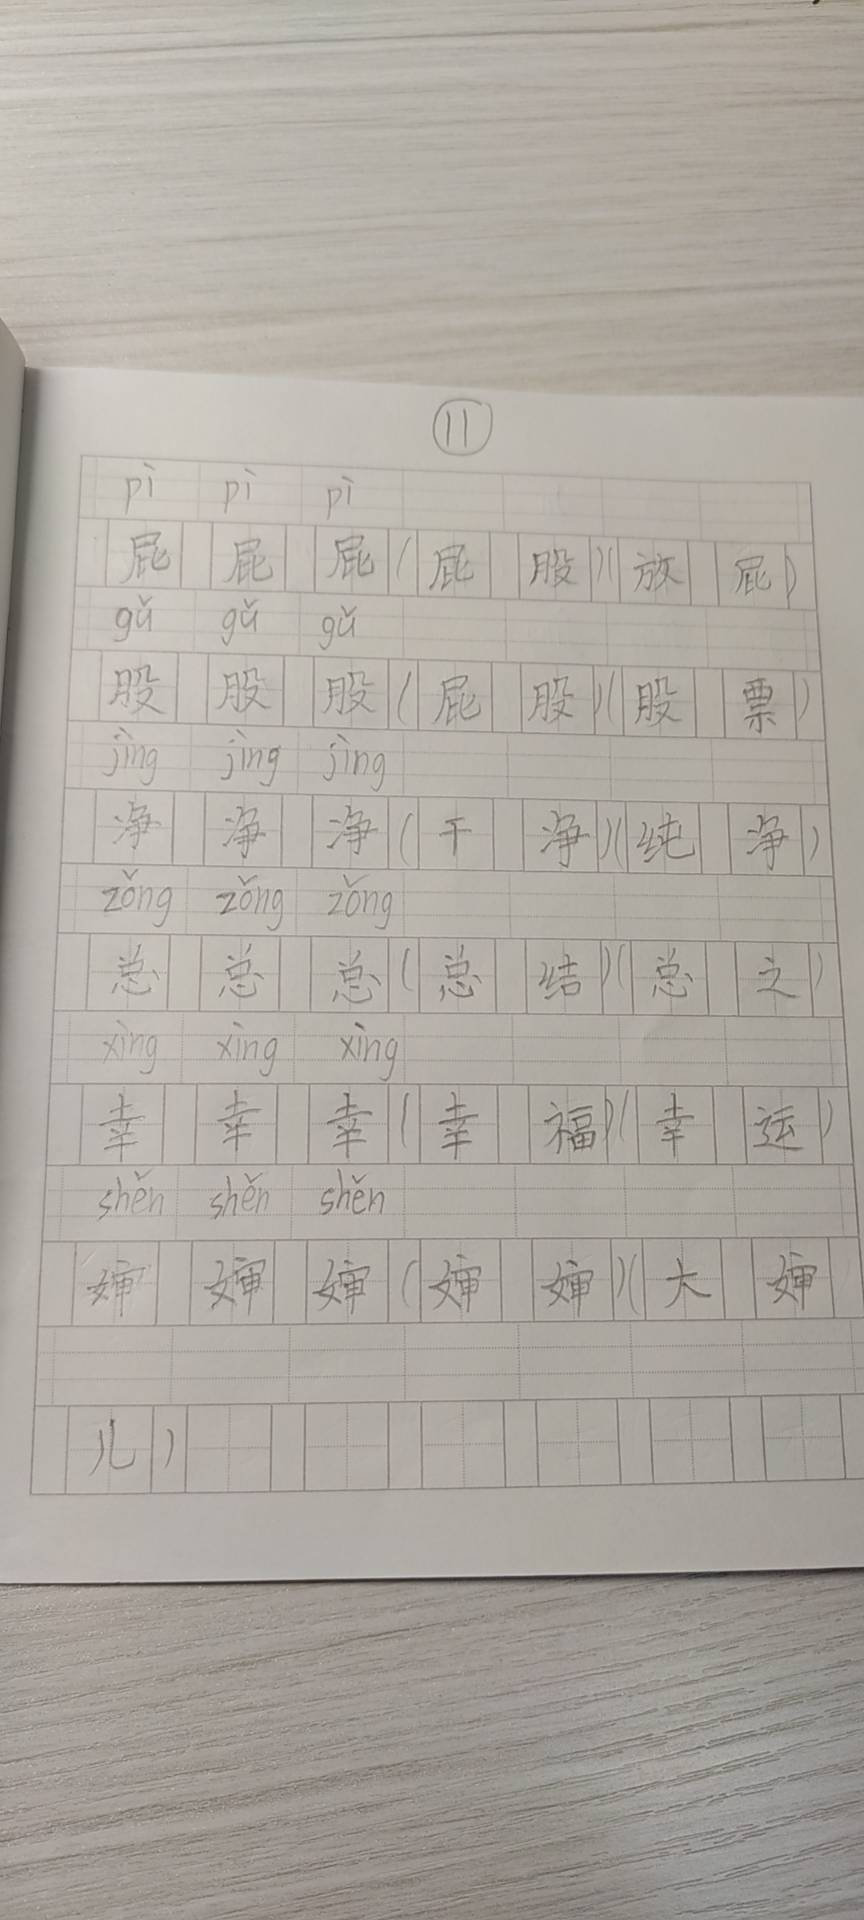 11
pì pì pì
屁 屁 屁 ( 屁 股 ) ( 放 屁 )
gǔ gǔ gǔ
股 股 股 ( 屁 股 ) ( 股 票 )
jìng jìng jìng
净 净 净 ( 干 净 ) ( 纯 净 )
zǒng zǒng zǒng
总 总 总 ( 总 结 ) ( 总 之 )
xìng xìng xìng
幸 幸 幸 ( 幸 福 ) ( 幸 运 )
shěn shěn shěn
婶 婶 婶 ( 婶 婶 ) ( 大 婶
儿 )